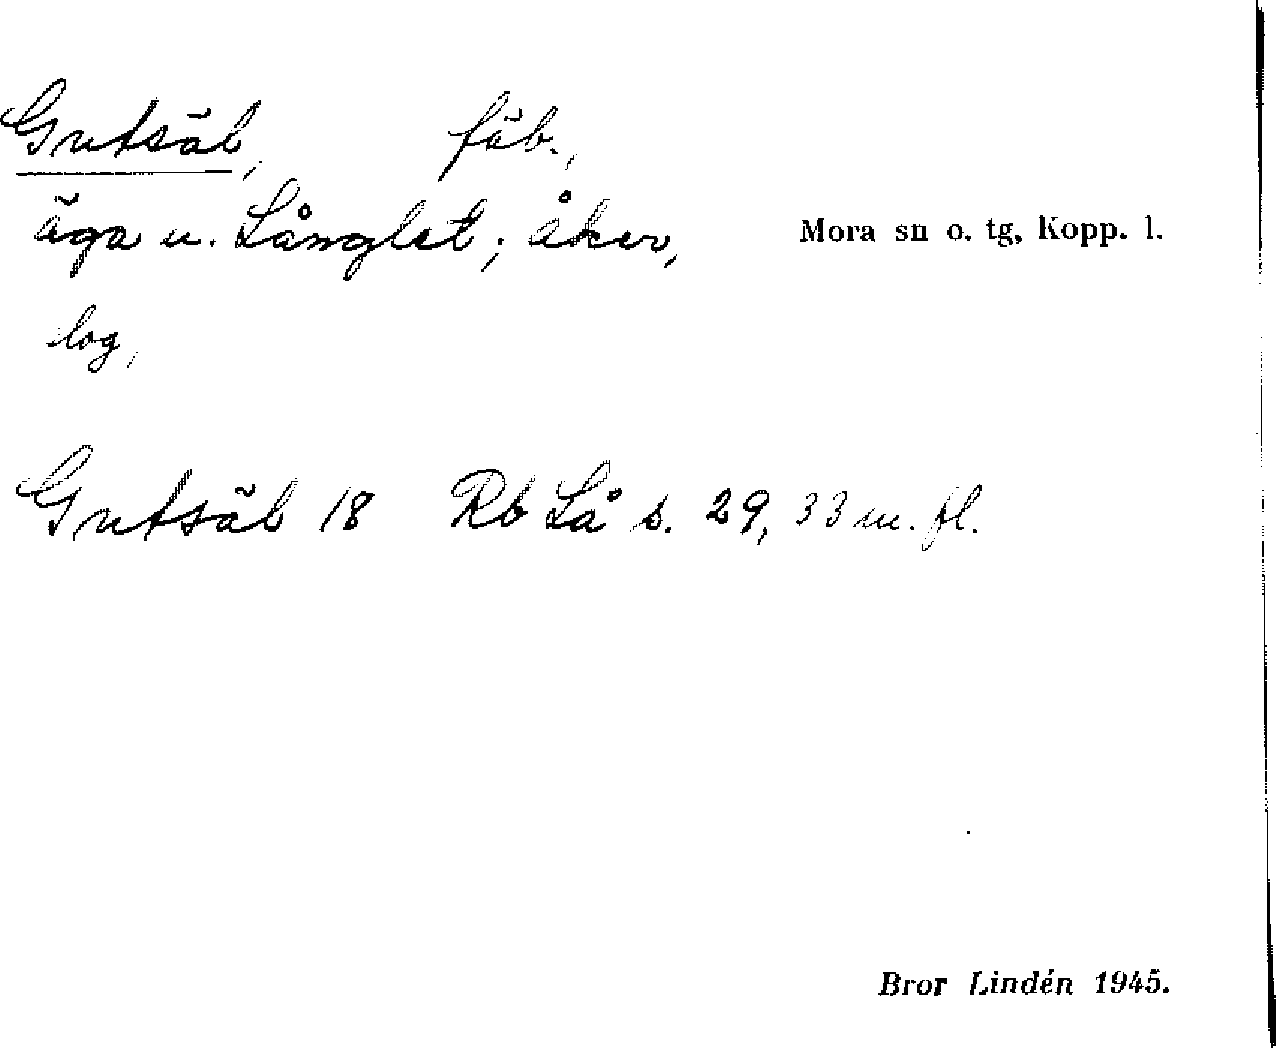 Gutsäl, fäb.,
äga u. Långlet; åker,
Mora sn o. tg, Kopp. l.
log,
Gutsäl 18 Rb Lå s. 29, 33 m. fl.
Bror Lindén 1945.